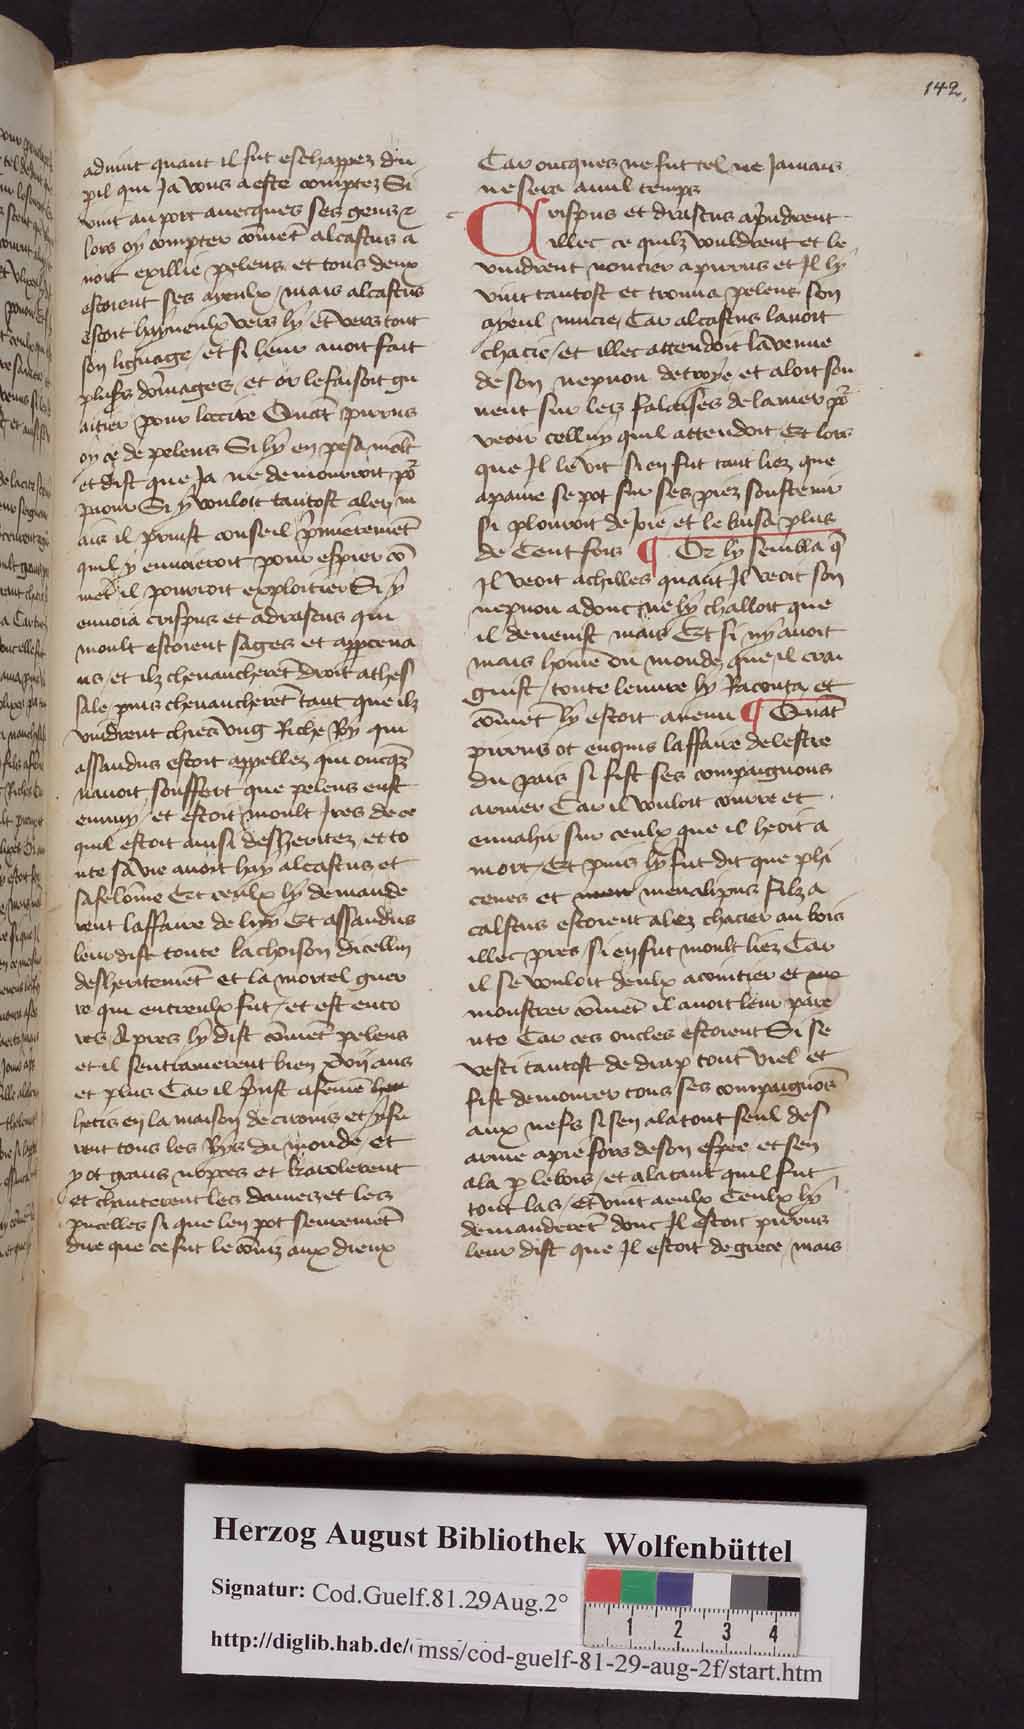 142.
aduint quant il fut eschappez du
pil qui Ja vous a este comptez Si
vint au port auecques ses gens &
lors oy compter cōmēt alcastus a
uoit exillie peleus et tous deux
estoient ses ayeulx / mais alcastus
estoit hayneulx vers ly et vers tout
son lignage / et si leur auoit fait
plus̄rs dōmages / et or le faisoit gu
aitier pour loccire Quāt pirrus
oy ce de peleus Si ly en pesa mōlt
et dist que Ja ne demourroit po᷑
paour Si y vouloit tantost aler / m
ais il prinst conseil p̄mierement̄
quil y enuoieroit pour espier cō
mēt il pourroit exploitier Si y
enuoia crispus et adrastus qui
moult estoient sages et appceua
ns / et ilz cheuaucherēt droit a thes
sale / puis cheuaucherēt tant que ilz
vindrent chiez vng Riche Roy qui
assandus estoit appellez qui oncq̄z
nauoit souffert que peleus eust
ennuy / et estoit moult Jres de ce
quil estoit ainsi desheritez / et to
ute sa vie auoit hay alcastus et
sa felōnie Et ceulx ly demande
rent laffaire de luy Et assandus
leur dist toute lachoison dicellui
desheritemēt et la mortel guer
re qui entreulx fut / et est enco
res Apres ly dist cōmēt peleus
et il sentramerent bien xvij ans
et plus Car il p̄ist a feme
hetis en la maison de cirouis et y fu
rent tous les Roys du monde / et
y ot grans nopces et karolerent
et chanterent les dames et les
pucelles si que len pot seuremēt
dire que ce fut le cōmz aux dieux
Car oncques ne fut tel ne Jamais
ne sera a nul temps
Crispus et drastus ap̄ndrent
illec ce quilz vouldrent et le
vindrent noncier a pirrus et Jl ly
vint tantost et trouua peleus son
ayeul mucie / Car alcastus lauoit
chacie / et illec attendoit la venue
de son nepuou de troye et aloit sou
uent sur les falaises de la mer po᷑
veoir celluy quil attendoit Et lors
que Jl le vit si en fut tant liez que
a paine se pot sur ses piez soustenir
si plouroit de joie et le baisa plus
de Cent fois ¶ Or ly sembla q̄
Jl veoit achilles quant Jl veoit son
nepuou adonc ne ly challoit que
il deuenist mais Et si ny auoit
mais home ou monde que il crai
gnist / toute leuure ly Raconta et
cōmēt ly estoit auenu ¶ Quāt
pirrus ot enquis laffaire de lestre
du pais si fist ses compaignons
armer Car il vouloit courre et
enuahir sur ceulx que il heoit a
mort / Et puis ly fut dit que phi
cenes et menalipus filz a
calstus estoient alez chacier au bois
illec pres / si en fut moult liez Car
il se vouloit deulx acointier et
monstrer cōmēt il auoit leur pare
nte Car ces oncles estoient Si se
vesti tantost de drap tout viel et
fist demourer tous ses compaignōs
aux nefs si sen ala tout seul des
arme apie fors de son espee et sen
ala p le bois / et ala tant quil fut
tout las / et vint a eulx Ceulx ly
demanderēt donc Jl estoit pirrus
leur dist que Jl estoit de grece / mais
Herzog August Bibliothek Wolfenbüttel
Signatur: Cod.Guelf.81.29Aug.2°
http://diglib.hab.de/mss/cod-guelf-81-29-aug-2f/start.htm
1 2 3 4